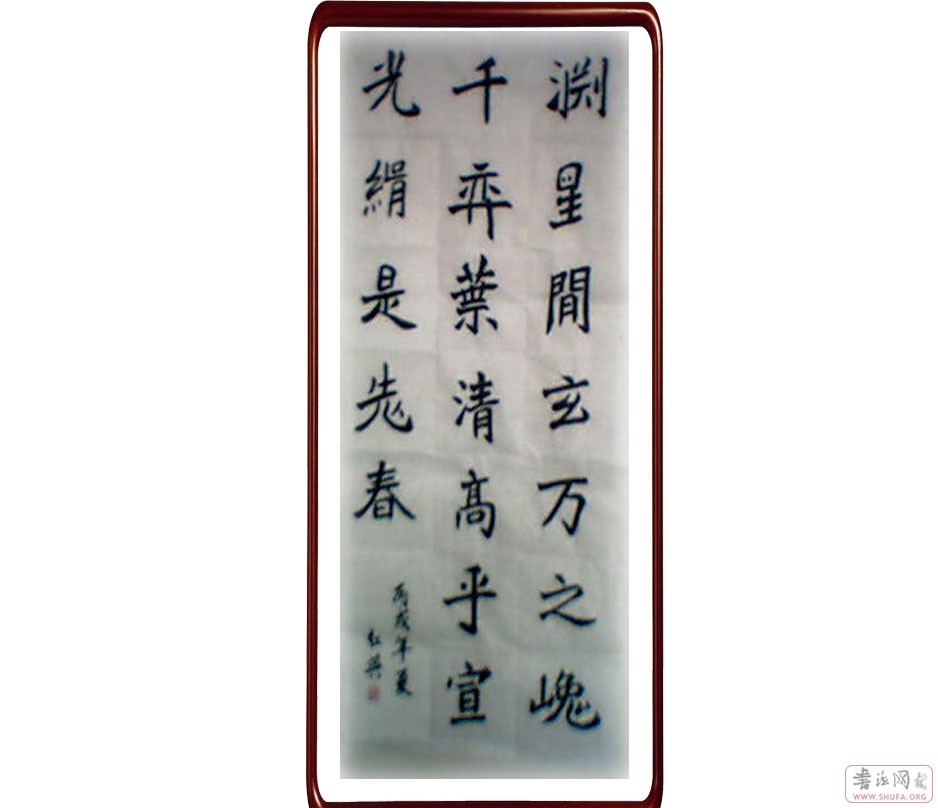 渊星間玄万之嵬
千弈葉清高乎宣
光絹是先春
丙戌年夏
書法网
WWW.SHUFA.ORG